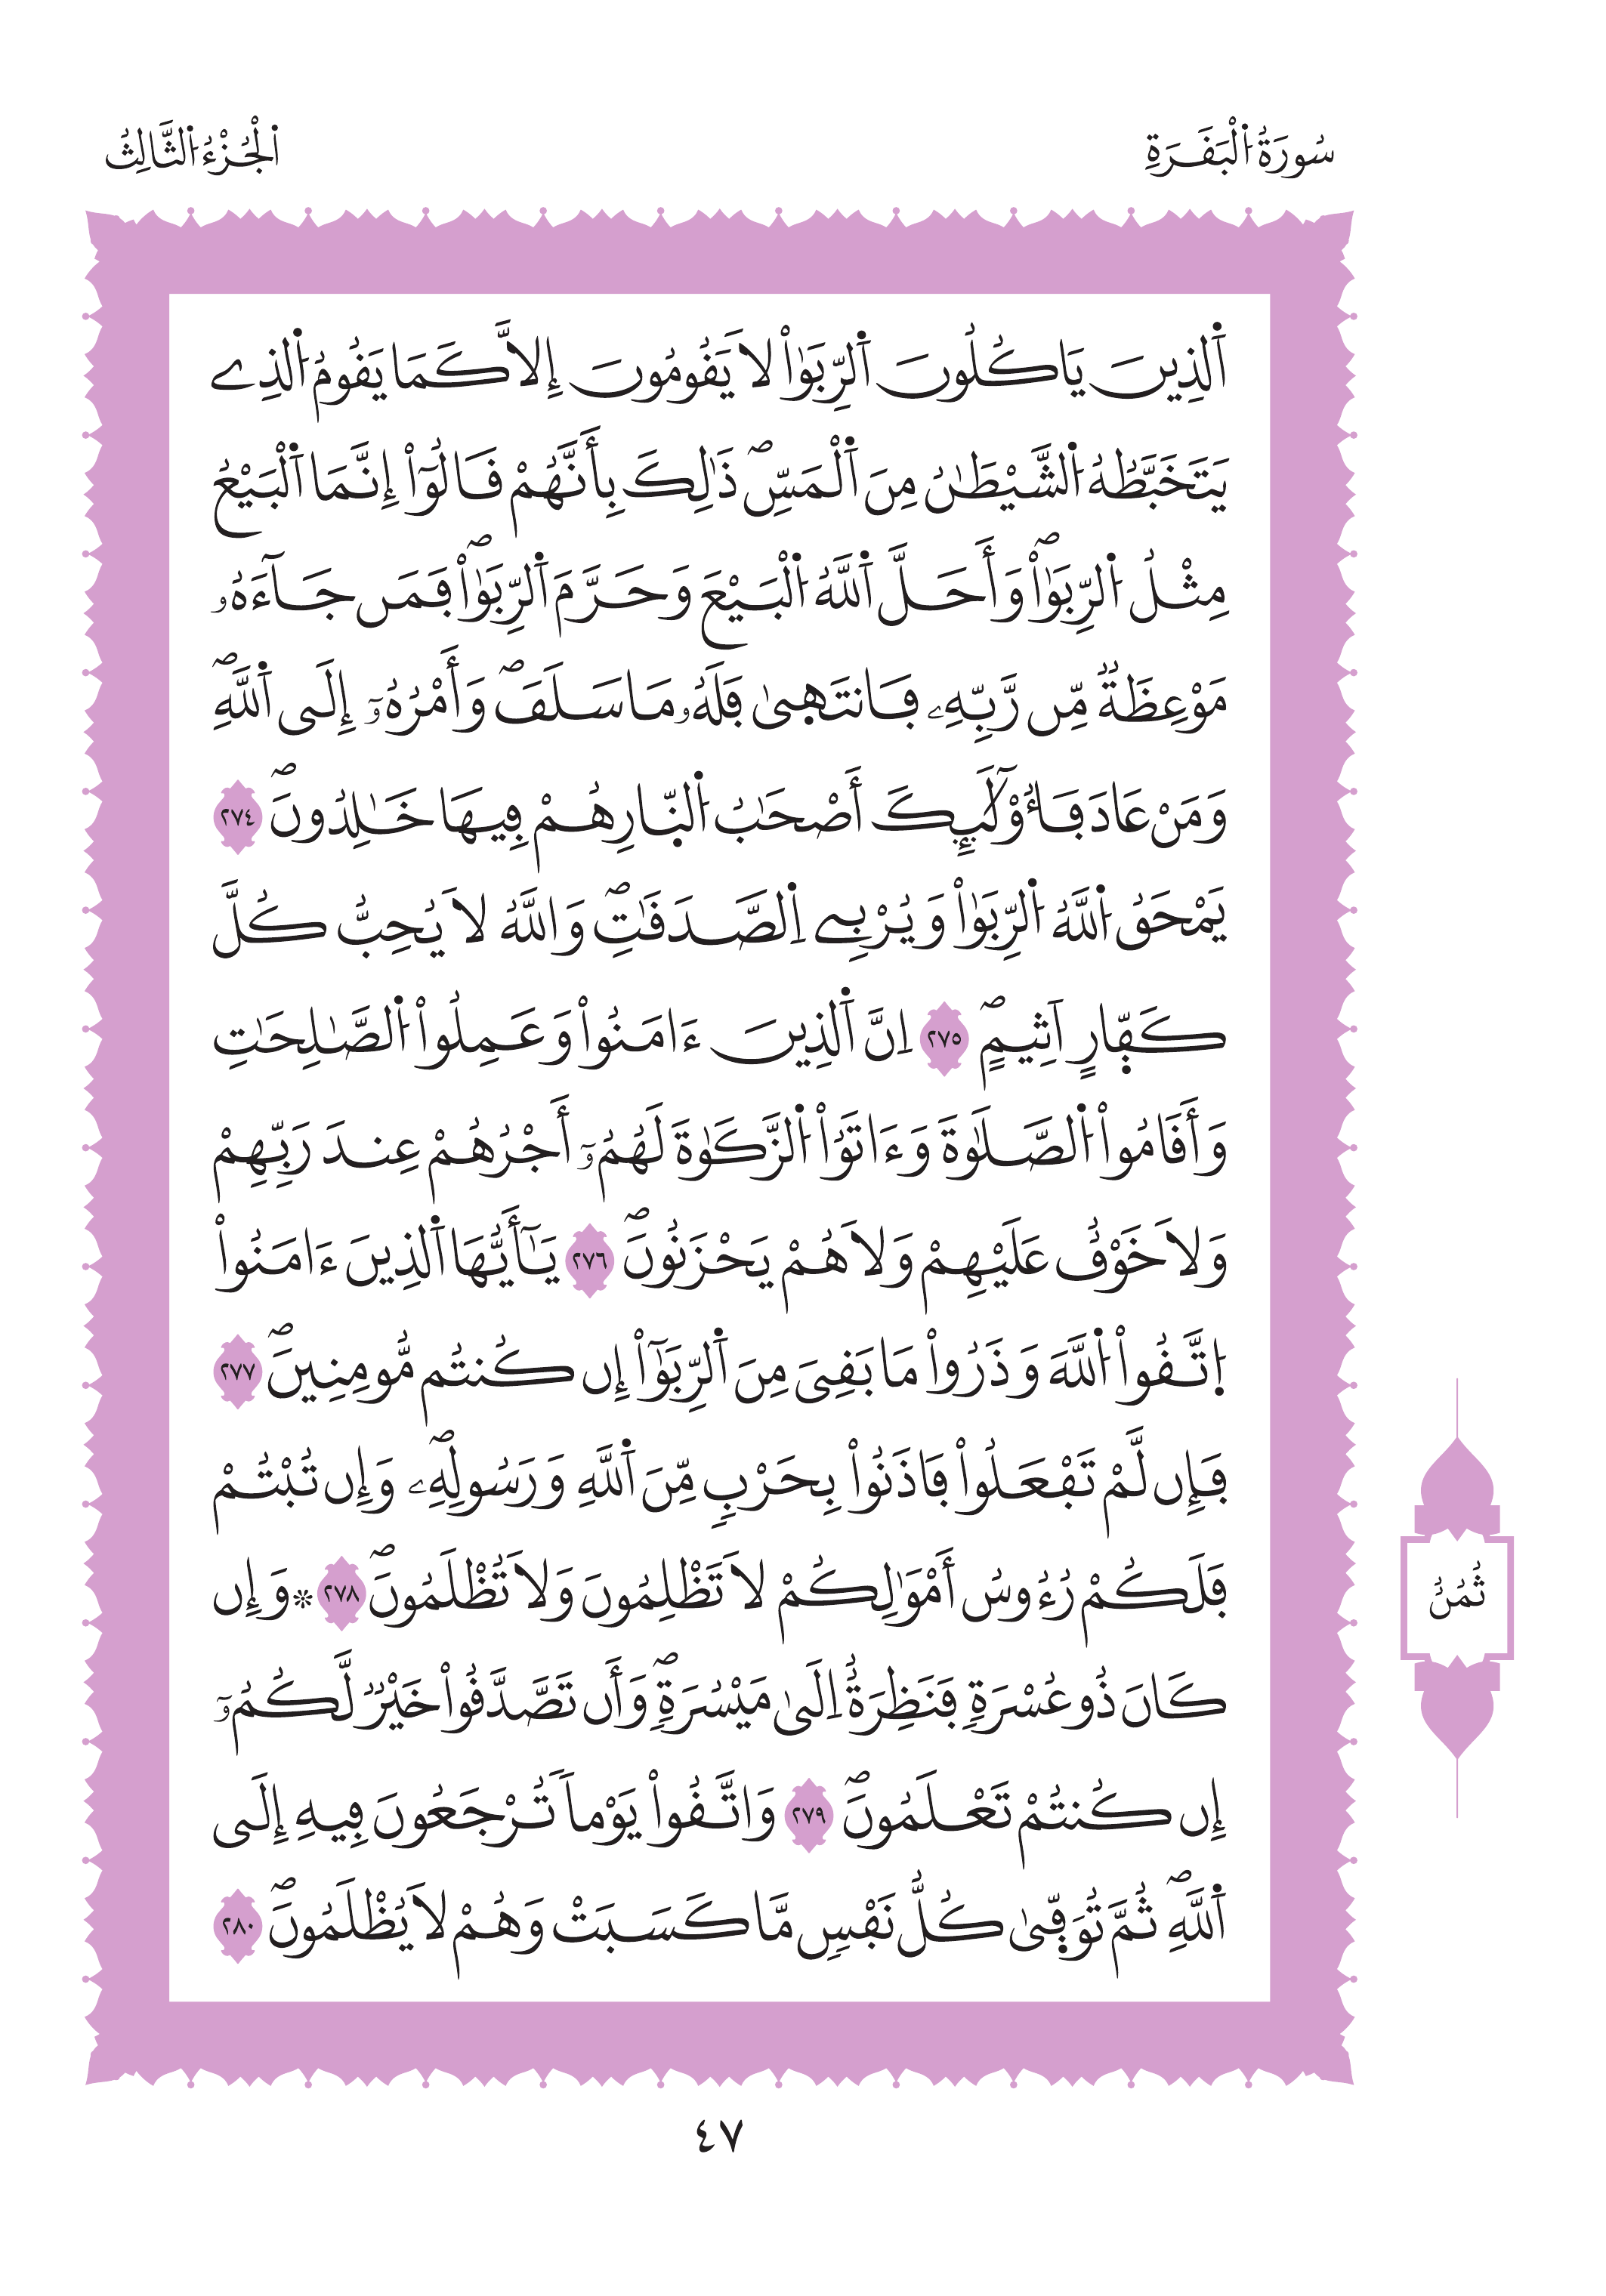 سُورَةُ اُ۬لْبَقَرَةِ
اَ۬لْجُزْءُ اُ۬لثَّالِثُ
اَ۬لذِينَ يَاكُلُونَ اَ۬لرِّبَوٰاْ لَا يَقُومُونَ إِلَّا كَمَا يَقُومُ اُ۬لذِے
يَتَخَبَّطُهُ اُ۬لشَّيْطَٰنُ مِنَ اَ۬لْمَسِّۖ ذَٰلِكَ بِأَنَّهُمْ قَالُوٓاْ إِنَّمَا اَ۬لْبَيْعُ
مِثْلُ اُ۬لرِّبَوٰاْۖ وَأَحَلَّ اَ۬للَّهُ اُ۬لْبَيْعَ وَحَرَّمَ اَ۬لرِّبَوٰاْۖ فَمَن جَآءَهُۥ
مَوْعِظَةٌ مِّن رَّبِّهِۦ فَانتَه۪ىٰ فَلَهُۥ مَا سَلَفَۖ وَأَمْرُهُۥٓ إِلَى اَ۬للَّهِۖ
وَمَنْ عَادَ فَأُوْلَٰٓئِكَ أَصْحَٰبُ اُ۬لنّ۪ارِ هُمْ فِيهَا خَٰلِدُونَۖ ٢٧٤
يَمْحَقُ اُ۬للَّهُ اُ۬لرِّبَوٰاْ وَيُرْبِے اِ۬لصَّدَقَٰتِۖ وَاللَّهُ لَا يُحِبُّ كُلَّ
كَفّ۪ارٍ اَثِيمٍۖ ٢٧٥ اِنَّ اَ۬لذِينَ ءَامَنُواْ وَعَمِلُواْ اُ۬لصَّٰلِحَٰتِ
وَأَقَامُواْ اُ۬لصَّلَوٰةَ وَءَاتَوُاْ اُ۬لزَّكَوٰةَ لَهُمُۥٓ أَجْرُهُمْ عِندَ رَبِّهِمْ
وَلَا خَوْفٌ عَلَيْهِمْ وَلَا هُمْ يَحْزَنُونَۖ ٢٧٦ يَٰٓأَيُّهَا اَ۬لذِينَ ءَامَنُواْ
اُ۪تَّقُواْ اُ۬للَّهَ وَذَرُواْ مَا بَقِيَ مِنَ اَ۬لرِّبَوٰٓاْ إِن كُنتُم مُّومِنِينَۖ ٢٧٧
فَإِن لَّمْ تَفْعَلُواْ فَاذَنُواْ بِحَرْبٍ مِّنَ اَ۬للَّهِ وَرَسُولِهِۦۖ وَإِن تُبْتُمْ
فَلَكُمْ رُءُوسُ أَمْوَٰلِكُمْ لَا تَظْلِمُونَ وَلَا تُظْلَمُونَۖ ٢٧٨ ۞وَإِن
كَانَ ذُو عُسْرَةٍ فَنَظِرَةٌ اِلَىٰ مَيْسُرَةٍۖ وَأَن تَصَّدَّقُواْ خَيْرٌ لَّكُمُۥٓ
إِن كُنتُمْ تَعْلَمُونَۖ ٢٧٩ وَاتَّقُواْ يَوْماً تُرْجَعُونَ فِيهِ إِلَى
اَ۬للَّهِۖ ثُمَّ تُوَفّ۪ىٰ كُلُّ نَفْسٍ مَّا كَسَبَتْ وَهُمْ لَا يُظْلَمُونَۖ ٢٨٠
ثُمُنُ
٤٧